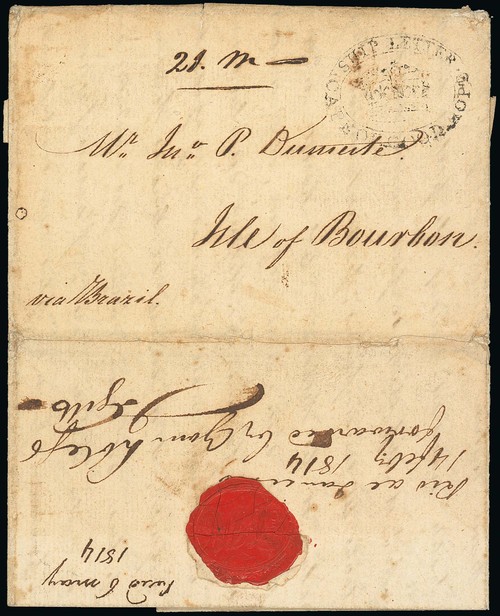 SHIP LETTER
GOOD HOPE
21. M
Mr. Jno. P. Dumeste.
Isle of Bourbon.
via Brazil.
Rio de Janeiro
14 feby 1814
forwarded by
Recd 6 may
1814